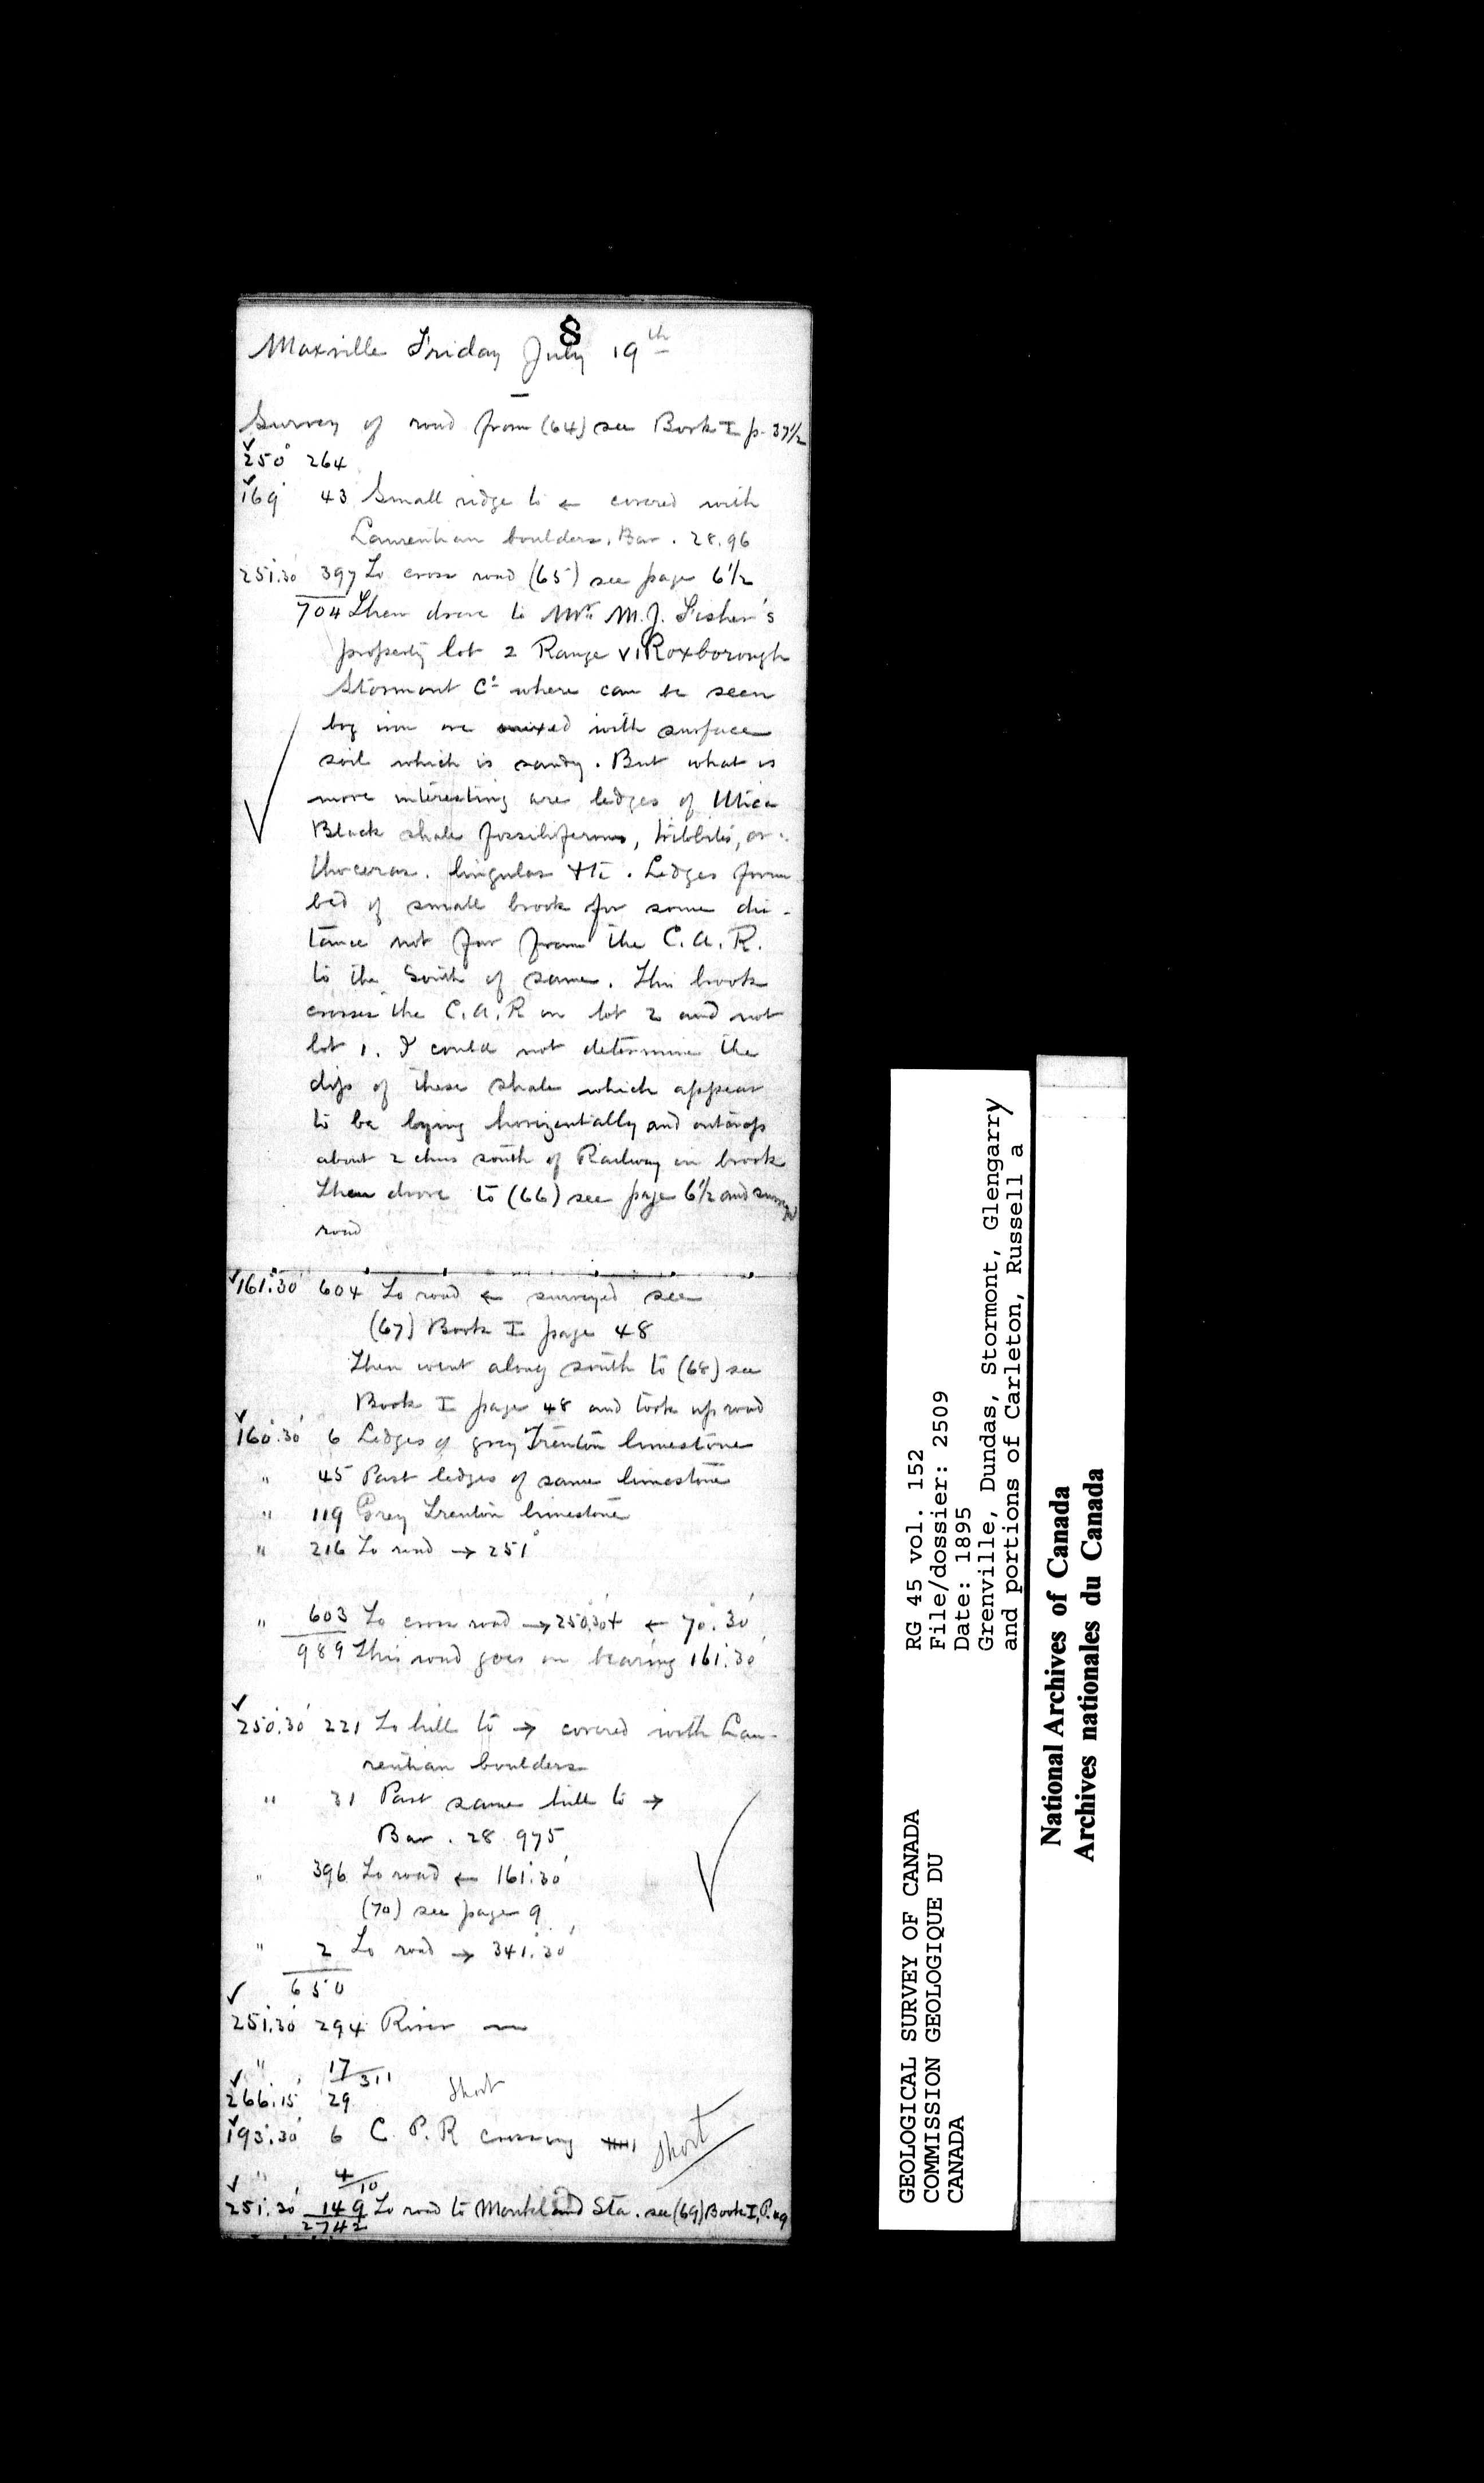 8
Maxville Friday July 19th
Survey of road from (64) see Book I p. 37½
✓250° 264
✓169° 43 Small ridge to ← covered with
Laurentian boulders. Bar. 28.96
251°.30' 397 To cross road (65) see page 6½
704 Then drove to Mr. M.J. Fisher's
property lot 2 Range VI Roxborough
Stormont Co. where can be seen
bog iron ore mixed with surface
soil which is sandy. But what is
more interesting are ledges of Utica
Black shale fossiliferous, trilobites, or-
thoceras. lingulas etc. Ledges form
bed of small brook for some dis-
tance not far from the C.A.R.
to the South of same. This brook
crosses the C.A.R on lot 2 and not
lot 1. I could not determine the
dips of these shale which appear
to be lying horizontally and outcrops
about 2 chns south of Railway in brook
Then drove to (66) see page 6½ and survey'd
road
✓161°.30' 604 To road ← surveyed see
(67) Book I page 48
Then went along south to (68) see
Book I page 48 and took up road
✓160°.30' 6 Ledges of grey Trenton limestone
" 45 Past ledges of same limestone
" 119 Grey Trenton limestone
" 216 To road → 251°
" 603 To cross road → 250°.30' + ← 70°.30'
989 This road goes on bearing 161°.30'
✓250°.30' 221 To hill to → covered with Lau-
rentian boulders
" 31 Past same hill to →
Bar. 28.975
" 396 To road ← 161°.30'
(70) see page 9
" 2 To road → 341°.30'
650
✓251°.30' 294 River
" 17 311
✓266°.15' 29 Short
✓193°.30' 6 C.P.R crossing Short
✓" 4 10
251°.30' 149 To road to Monkland Sta. see (69) Book I, P. 49
2742
RG 45 vol. 152
File/dossier: 2509
Date: 1895
Grenville, Dundas, Stormont, Glengarry
and portions of Carleton, Russell a
GEOLOGICAL SURVEY OF CANADA
COMMISSION GEOLOGIQUE DU
CANADA
National Archives of Canada
Archives nationales du Canada